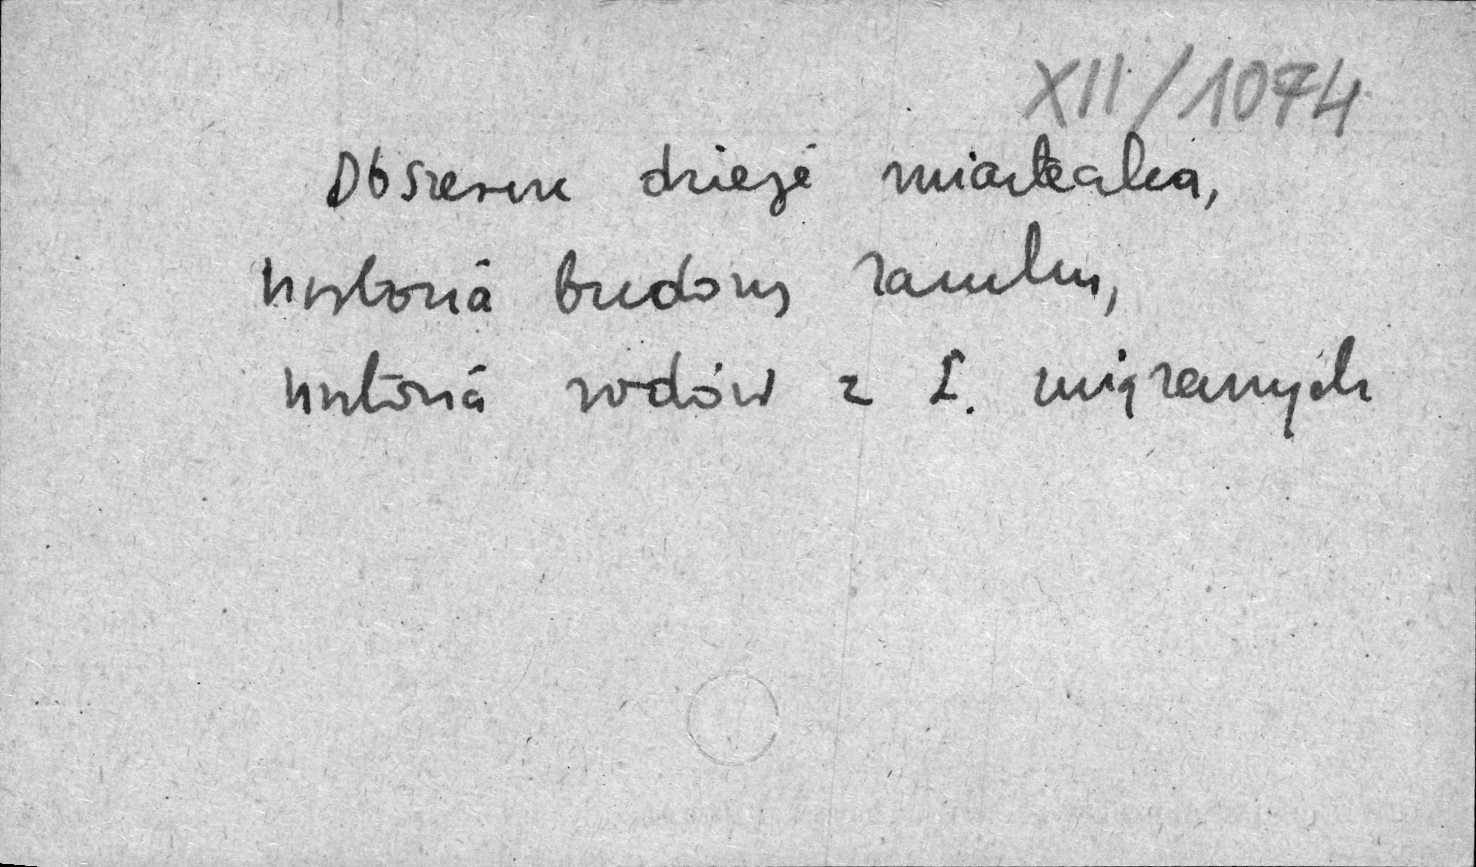 XII/1074
Obszerne dzieje miasteczka,
historia budowy zamku,
historia rodów z Ł. związanych